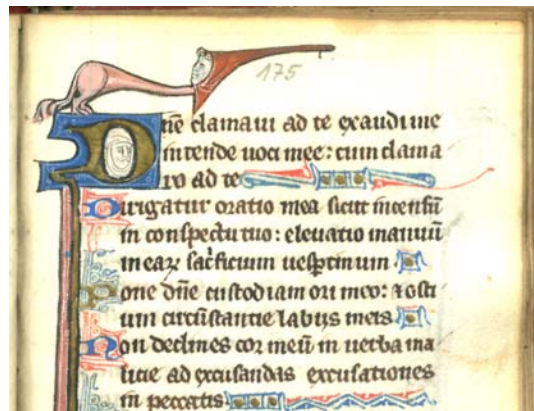 175
Dn̄e clamaui ad te exaudi me
intende uoci mee: cum clama
ro ad te
Dirigatur oratio mea sicut incensū
in conspectu tuo: eleuatio manuū
mearꝝ sac̓ficium uesp̄tinum.
Pone dn̄e custodiam ori meo: ⁊ osti
um circūstantie labijs meis.
Non declines cor meū in uerba ma
licie ad excusandas excusationes
in peccatis.